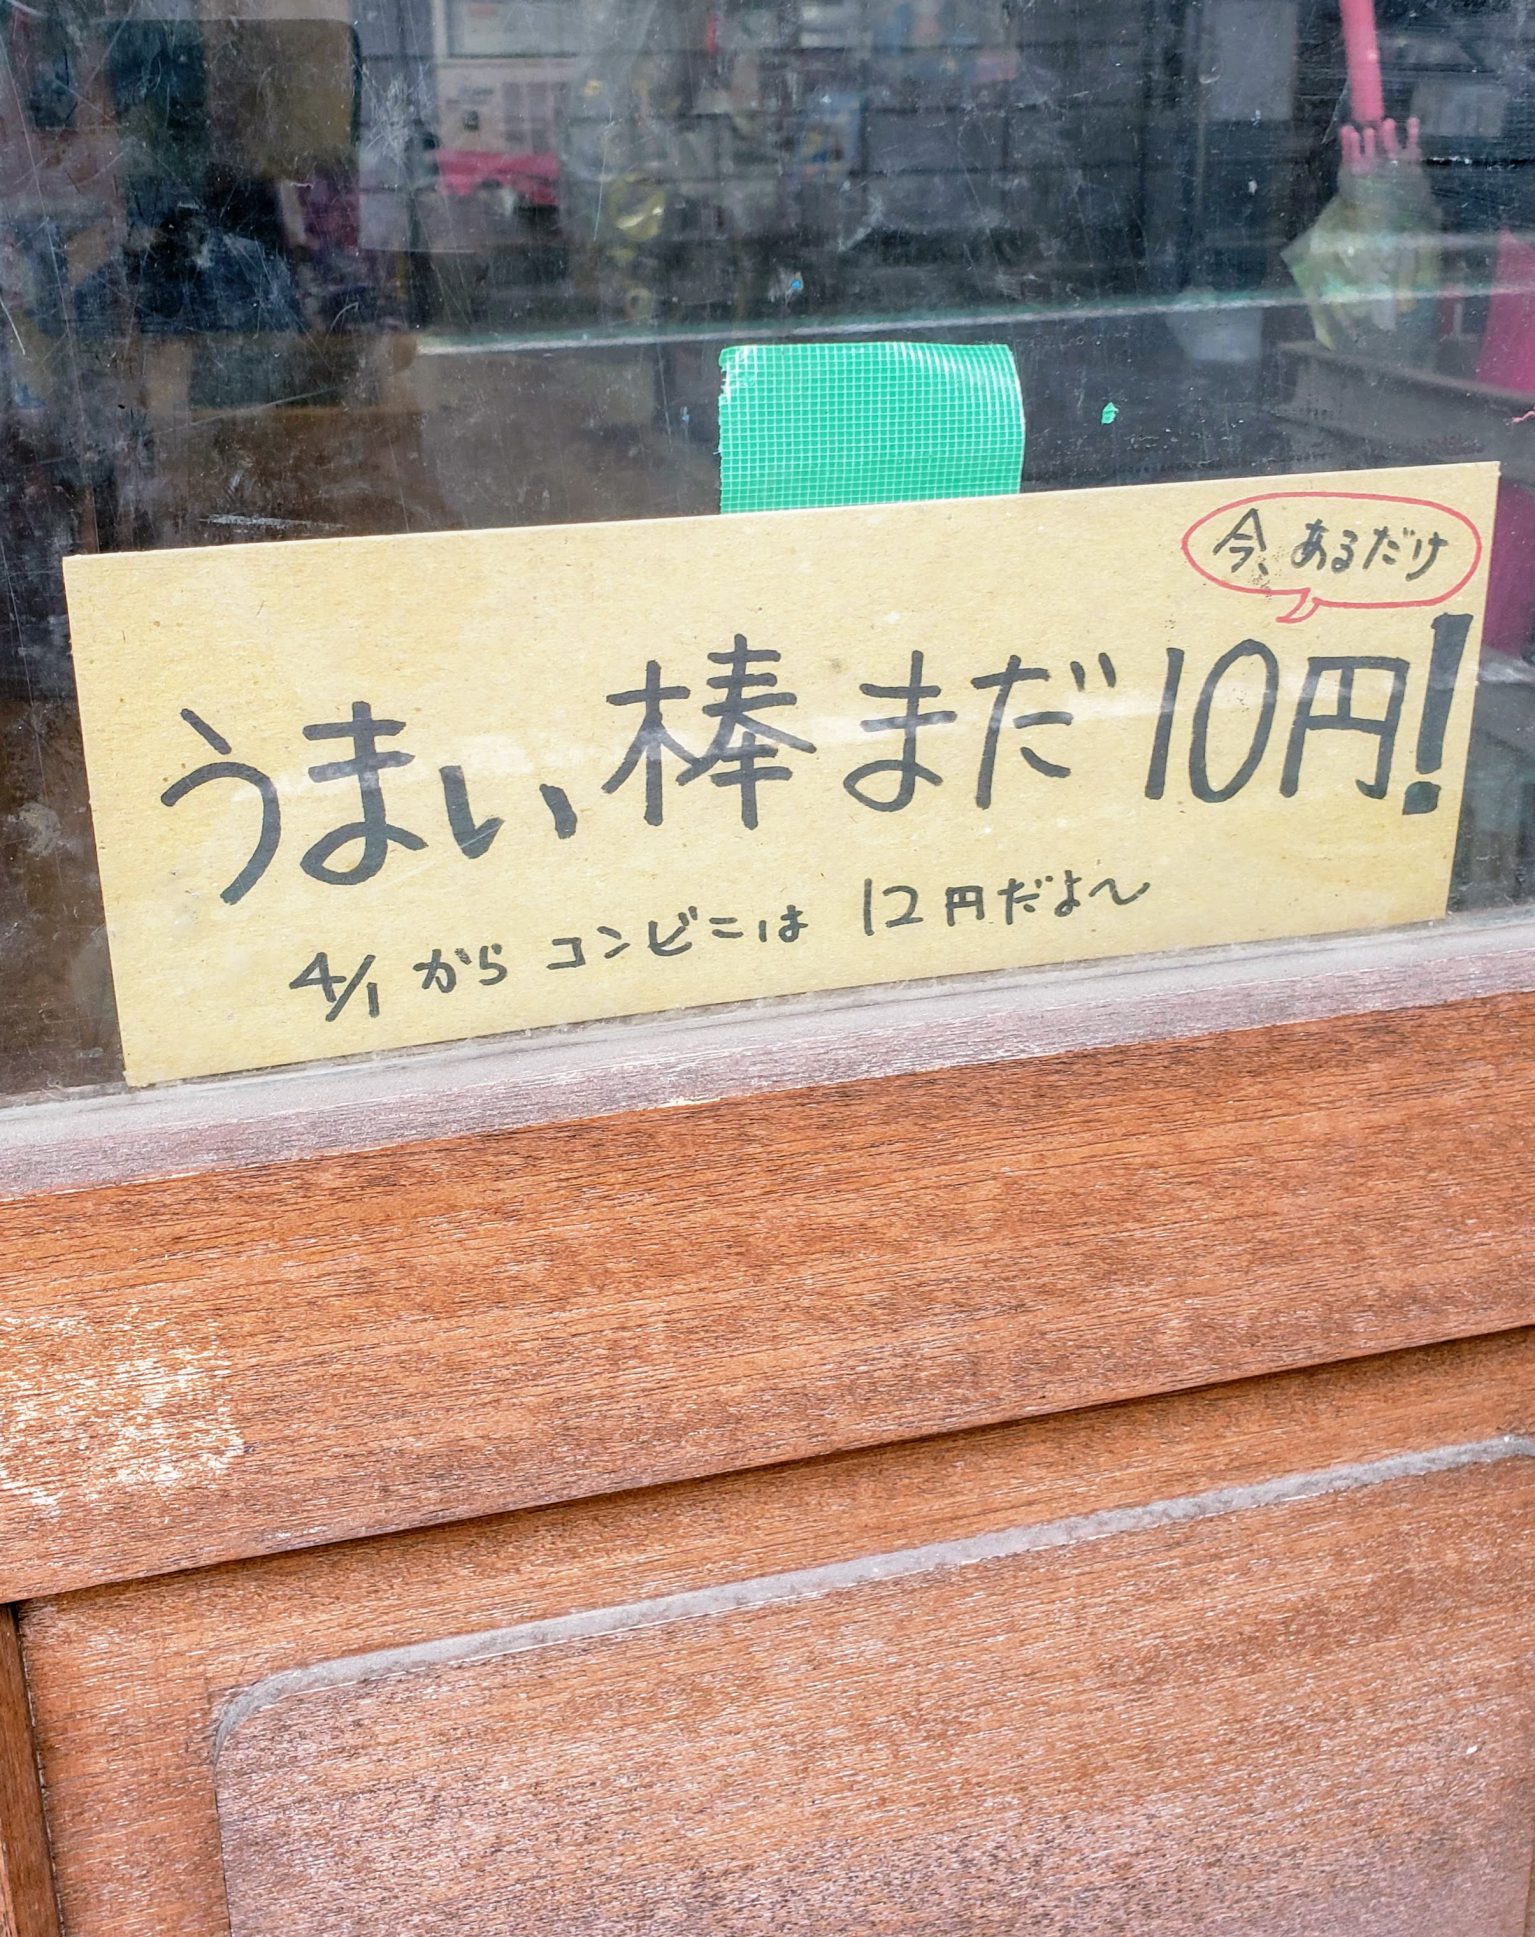 今、あるだけ
うまい棒 まだ 10円!
4/1 から コンビニは 12円だよ〜